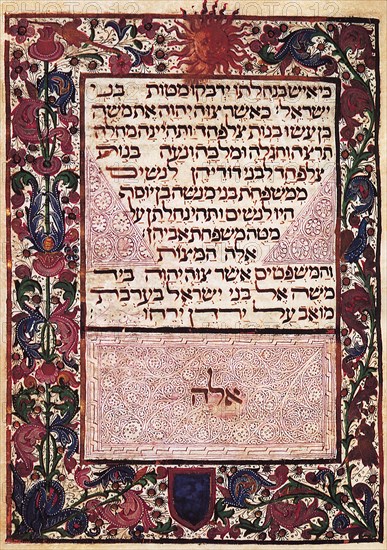 כי איש בנחלתו ידבקו מטות בני
ישראל כאשר צוה יהוה את משה
כן עשו בנות צלפחד ותהיינה מחלה
תרצה וחגלה ומלכה ונעה בנות
צלפחד לבני דודיהן לנשים
ממשפחת בני מנשה בן יוסף
היו לנשים ותהי נחלתן על
מטה משפחת אביהן
אלה המצות
והמשפטים אשר צוה יהוה ביד
משה אל בני ישראל בערבת
מואב על ירדן ירחו
אלה